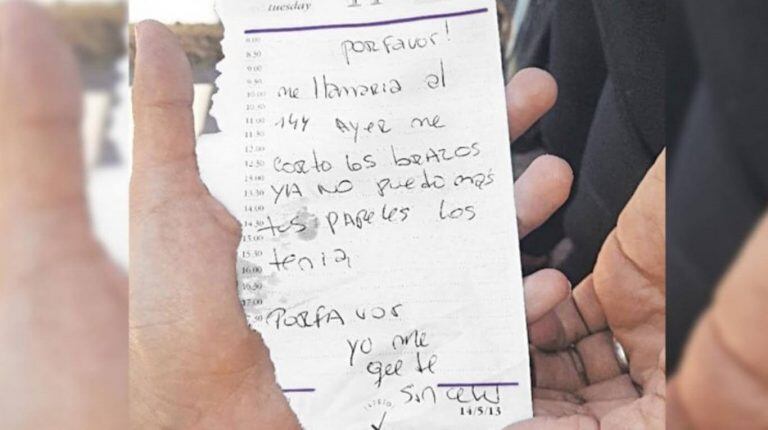 tuesday
8.00
8.30
9.00
9.30
10.00
10.30
11.00
11.30
12.00
12.30
13.00
13.30
14.00
14.30
15.00
15.30
16.00
16.30
17.00
por favor!
me llamaria al
144 AYER me
corto los brazos
YIA NO puedo más
tus papeles los
tenia
PORFAVOR
yo me
que de
sin celu
14/5/13